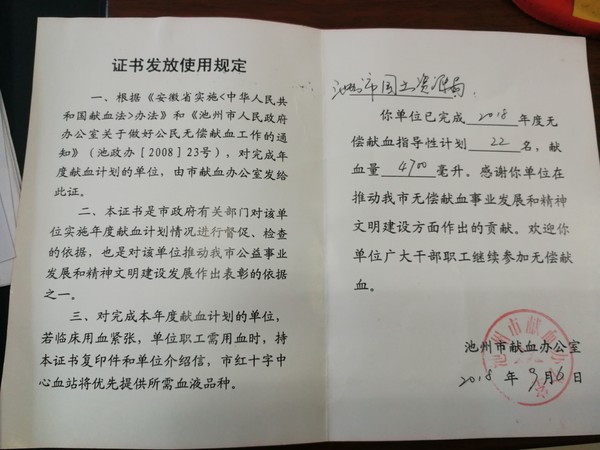 证书发放使用规定
一、根据《安徽省实施<中华人民共
和国献血法>办法》和《池州市人民政府
办公室关于做好公民无偿献血工作的通
知》（池政办［2008］23号），对完成年
度献血计划的单位，由市献血办公室发给
此证。
二、本证书是市政府有关部门对该单
位实施年度献血计划情况进行督促、检查
的依据，也是对该单位推动我市公益事业
发展和精神文明建设发展作出表彰的依据
之一。
三、对完成本年度献血计划的单位，
若临床用血紧张，单位职工需用血时，持
本证书复印件和单位介绍信，市红十字中
心血站将优先提供所需血液品种。
池州市国土资源局：
你单位已完成2018年度无
偿献血指导性计划22名，献
血量4700毫升。感谢你单位在
推动我市无偿献血事业发展和精神
文明建设方面作出的贡献。欢迎你
单位广大干部职工继续参加无偿献
血。
池州市献血办公室
2018年9月6日
池州市献血办公室